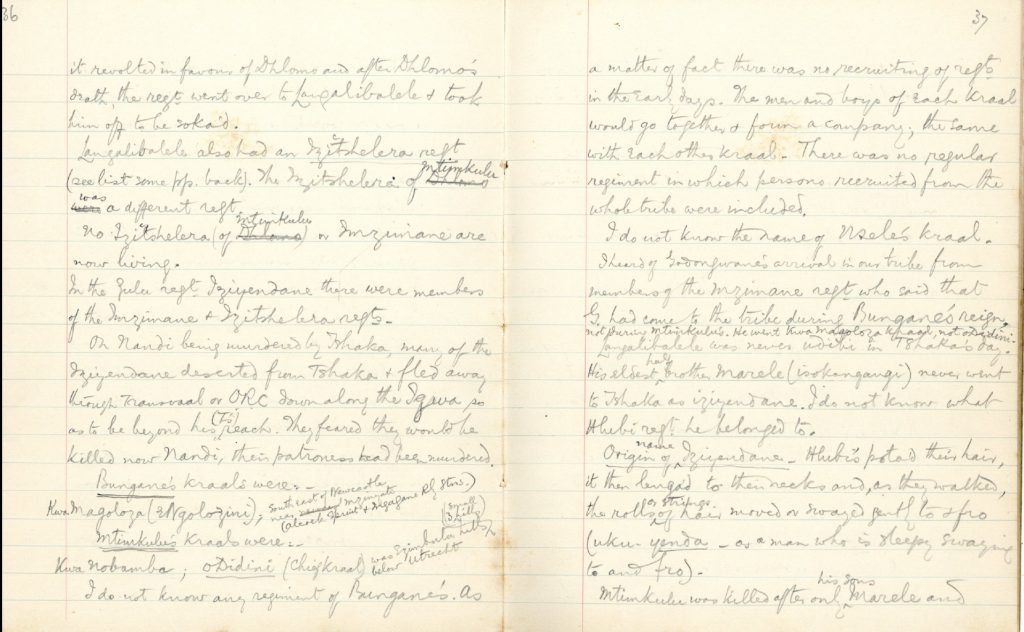 36
it revolted in favour of Dhlomo and after Dhlomo's
death, the regt. went over to Langalibalele & took
him off to be soka'd.
Langalibalele also had an Izitshelera regt
(see list some pp. back). The Izitshelera of Mtimkulu Dhlomo
was were a different regt.
No Izitshelera (of Mtimkulu Dhlomo) or Imzimane are
now living.
In the Zulu regt. Iziyendane there were members
of the Imzimane & Izitshelera regts.
On Nandi being murdered by Tshaka, many of the
Iziyendane deserted from Tshaka & fled away
through Transvaal or ORC down along the Igwa, so
as to be beyond his (Ts') reach. They feared they would be
killed now Nandi, their patroness had been murdered.
Bungane's kraals were:-
KwaMagoloza (eNgolozini); South east of Newcastle
near Mzinyati
(Alcock Spruit & Ingagane Rly Stns.)
Mtimkulu's kraals were:-
Kwa Nobamba; oDidini (Chief kraal) was Ezimbutu hills
below Utrecht
I do not know any regiment of Bungane's. As
37
a matter of fact there was no recruiting of regts
in the early days. The men and boys of each kraal
would go together & form a company; the same
with each other kraal. There was no regular
regiment in which persons recruited from the
whole tribe were included.
I do not know the name of Nsele's kraal.
I heard of Godongwane's arrival in our tribe from
members of the Mzimane regt. who said that
G. had come to the tribe during Bungane's reign,
not during Mtimkulu's. He went KwaMagoloza kraal, not oDidini.
Langalibalele was never udibi in Tshaka's day.
His eldest half brother Marele (isokangangi) never went
to Tshaka as iziyendane. I do not know what
Hlubi regt. he belonged to.
Origin of name Iziyendane - Hlubi's potad their hair,
it then hengad to their necks and, as they walked,
the rolls or strings of hair moved or swayed gently to & fro
(uku-yenda - as a man who is sleepy swaying
to and fro).
Mtimkulu was killed after only his sons Marele and